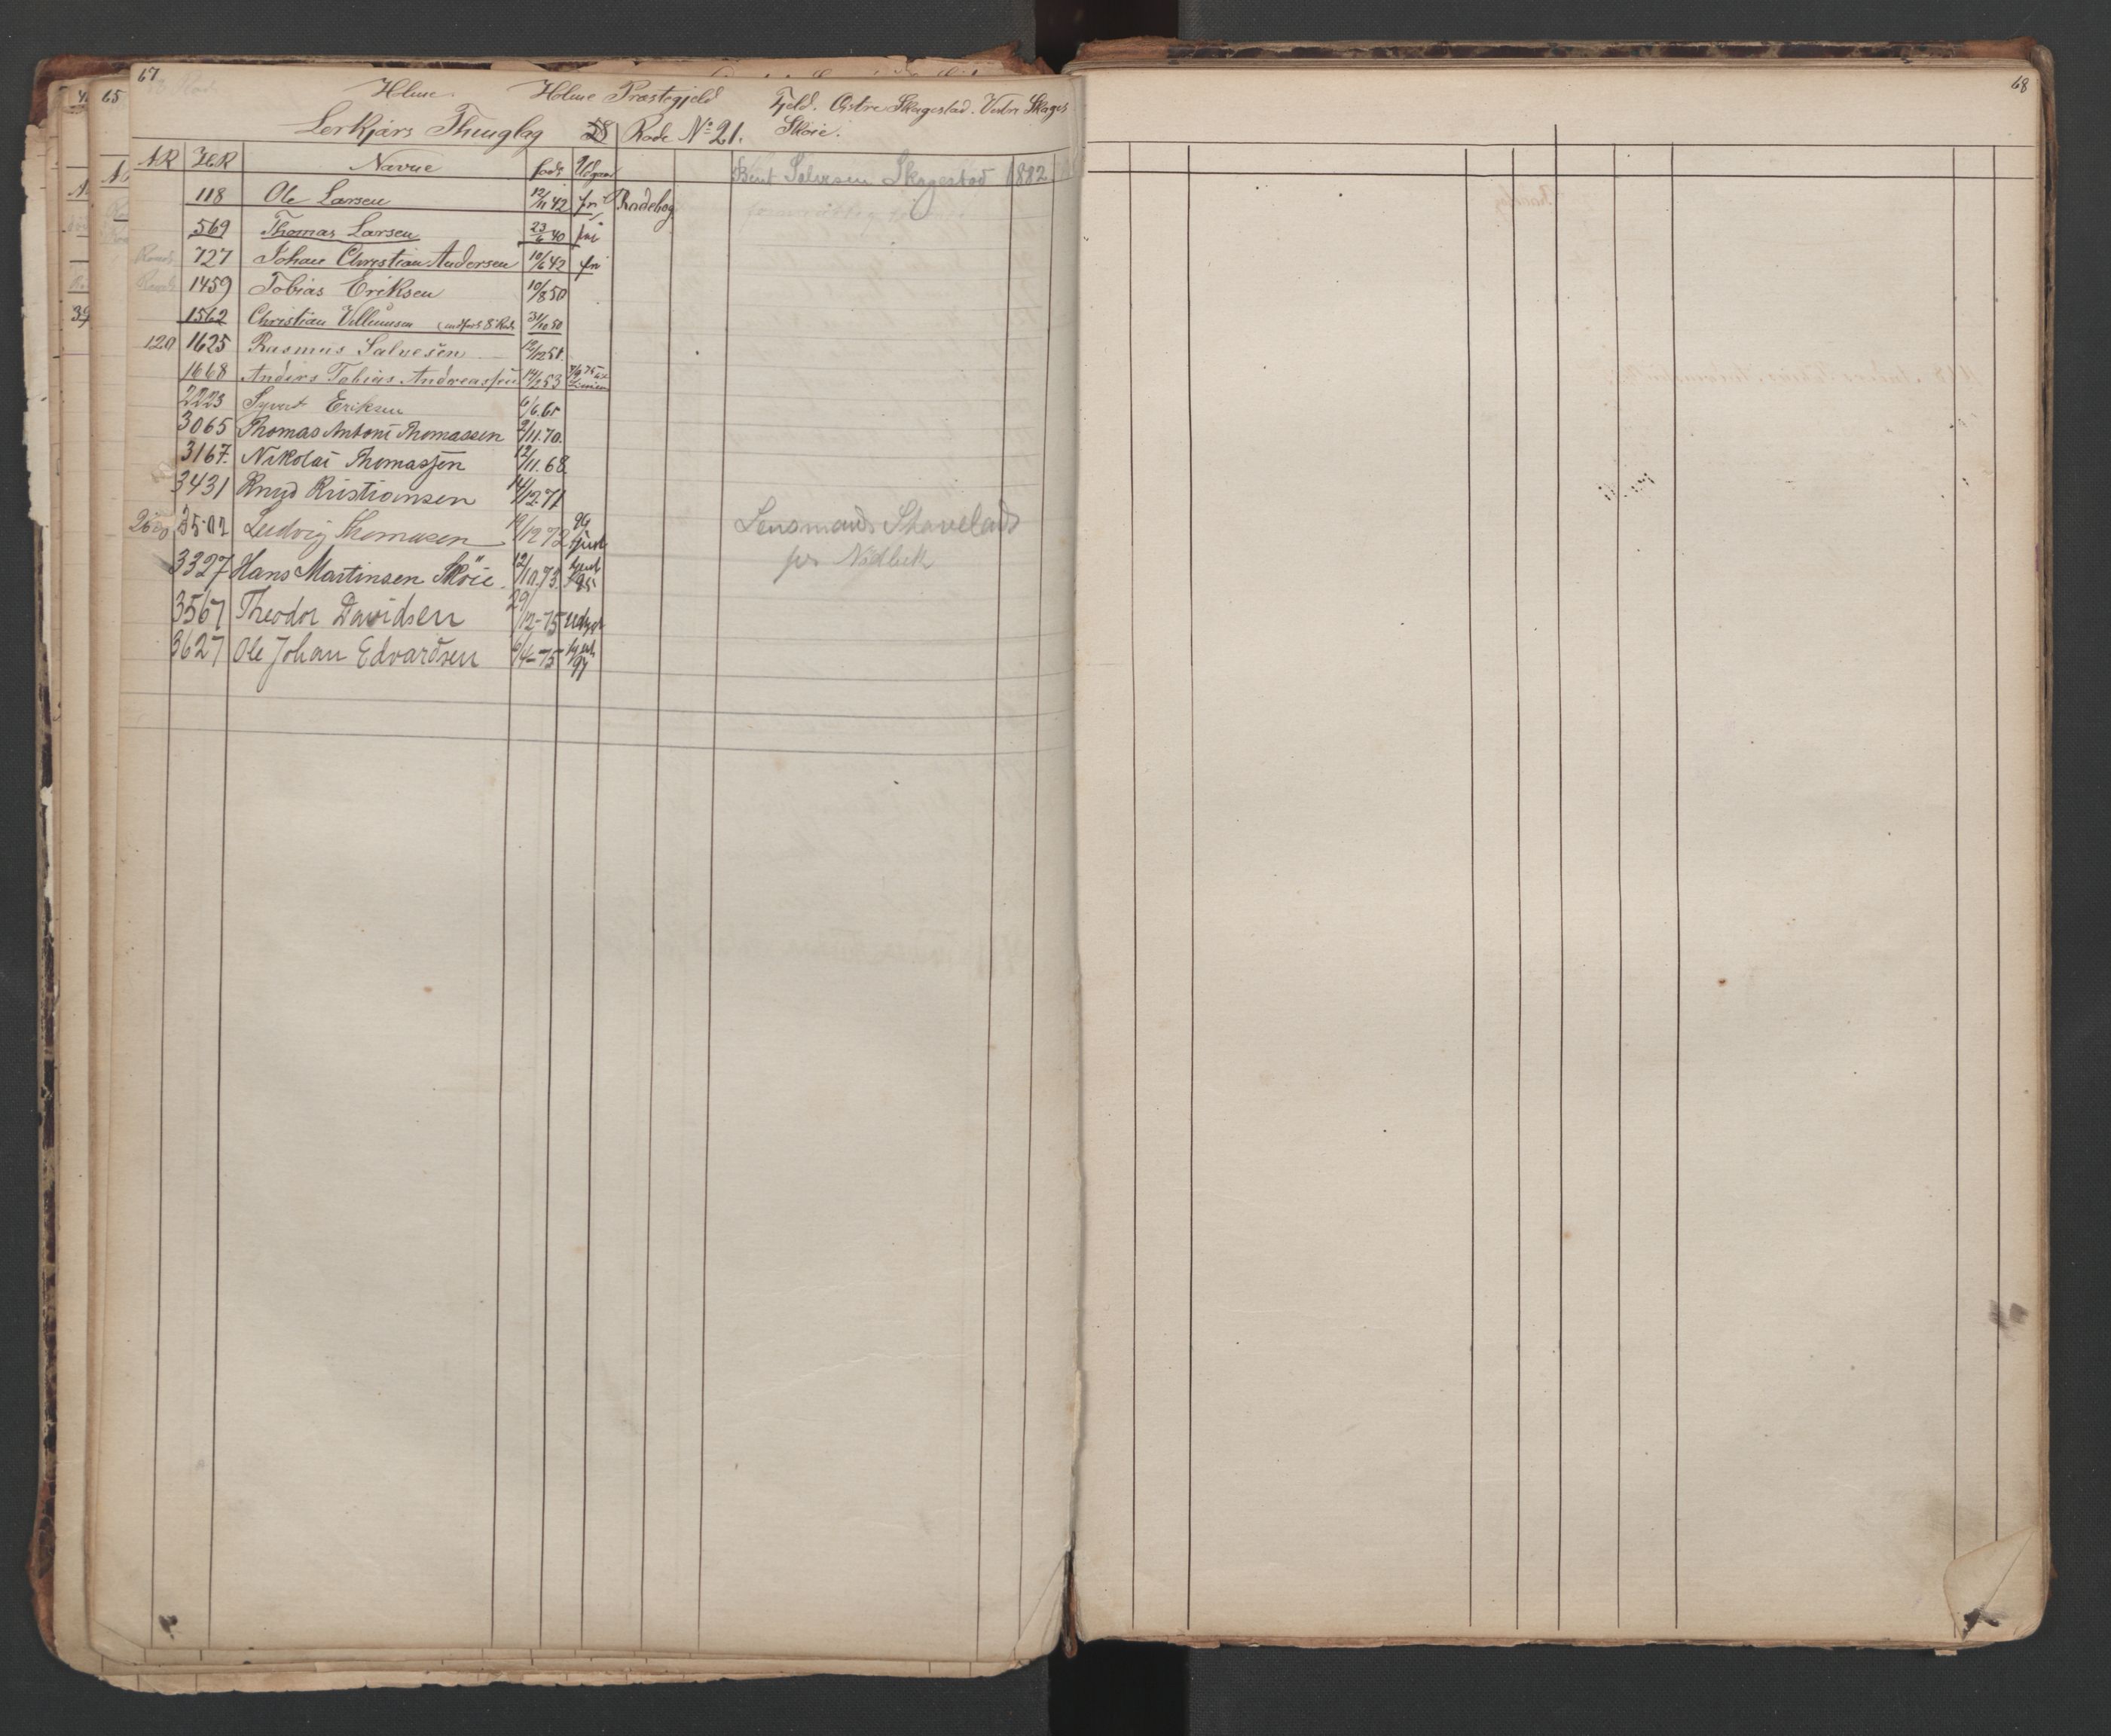 67
Holme Holme Præstegjeld Fjeld. Østre Skagestad. Vestre Skages
Lerkjærs Thinglag 28 Rode No 21. Skøie.
AR HR Navne født Udgaar
Bent Salvesen Skagestad 1882
118 Ole Larsen 12/11 42 fri Rodebog
569 Thomas Larsen 23/6 40 fri
727 Johan Christian Andersen 10/6 42 fri
1459 Tobias Eriksen 10/8 50
1562 Christian Villumsen 31/10 50
120 1625 Rasmus Salvesen 12/12 51.
1668 Anders Tobias Andreassen 14/2 53
2223 Syvert Eriksen 6/6.61
3065 Thomas Antoni Thomassen 2/11.70.
3167. Nikolai Thomassen 12/11.68.
3431 Knud Kristiansen 14/12.71
3507 Ludvig Thomasen 19/12 72
Lensmand Stavelands
3327 Hans Martinsen Skøie. 12/10.73. 95
3567 Theodor Davidsen 29/12-75 Udgaar
3627 Ole Johan Edvardsen 6/4-75 97
68
65